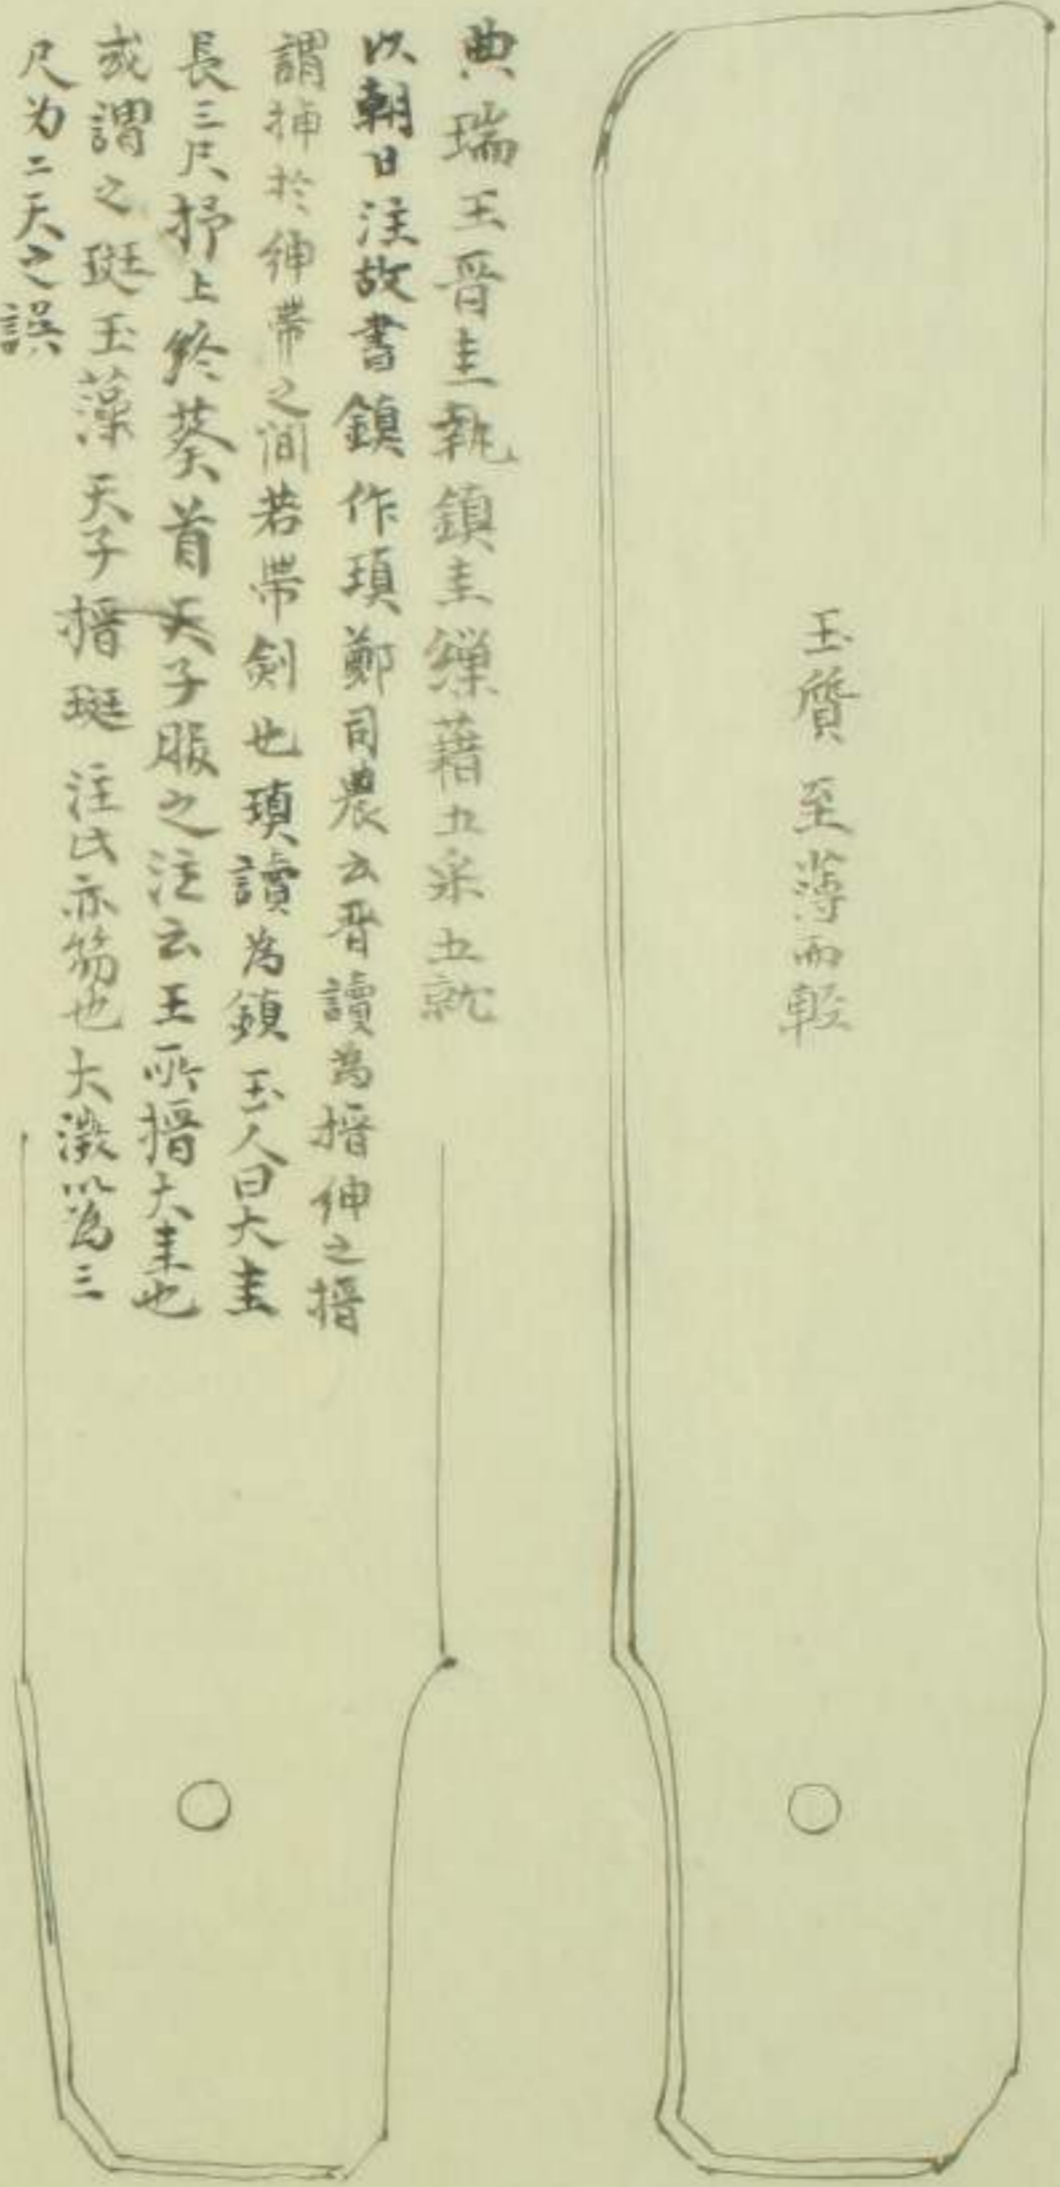 玉質至薄而輕
典瑞王晉圭執鎮圭繅藉五采五就
以朝日注故書鎮作瑱鄭司農云晉讀為搢紳之搢
謂插於紳帶之間若帶劍也瑱讀為鎮玉人曰大圭
長三尺抒上終葵首天子服之注云王所搢大圭也
或謂之珽玉藻天子搢珽注氏亦笏也大澂以為三
尺为二尺之誤